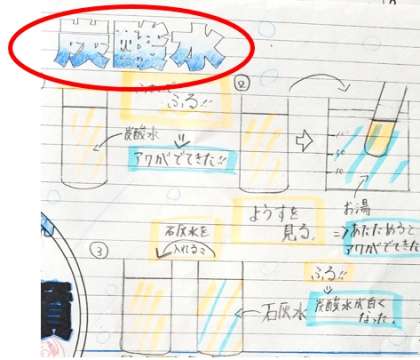 炭酸水
ふる!!
①
②
炭酸水
⇓
アワがでてきた!!
⇨
お湯
⇒あたためると
アワがでてきた
ようすを
見る。
石灰水を
入れると
③
石灰水
ふる!!
⇓
炭酸水が白く
なった。